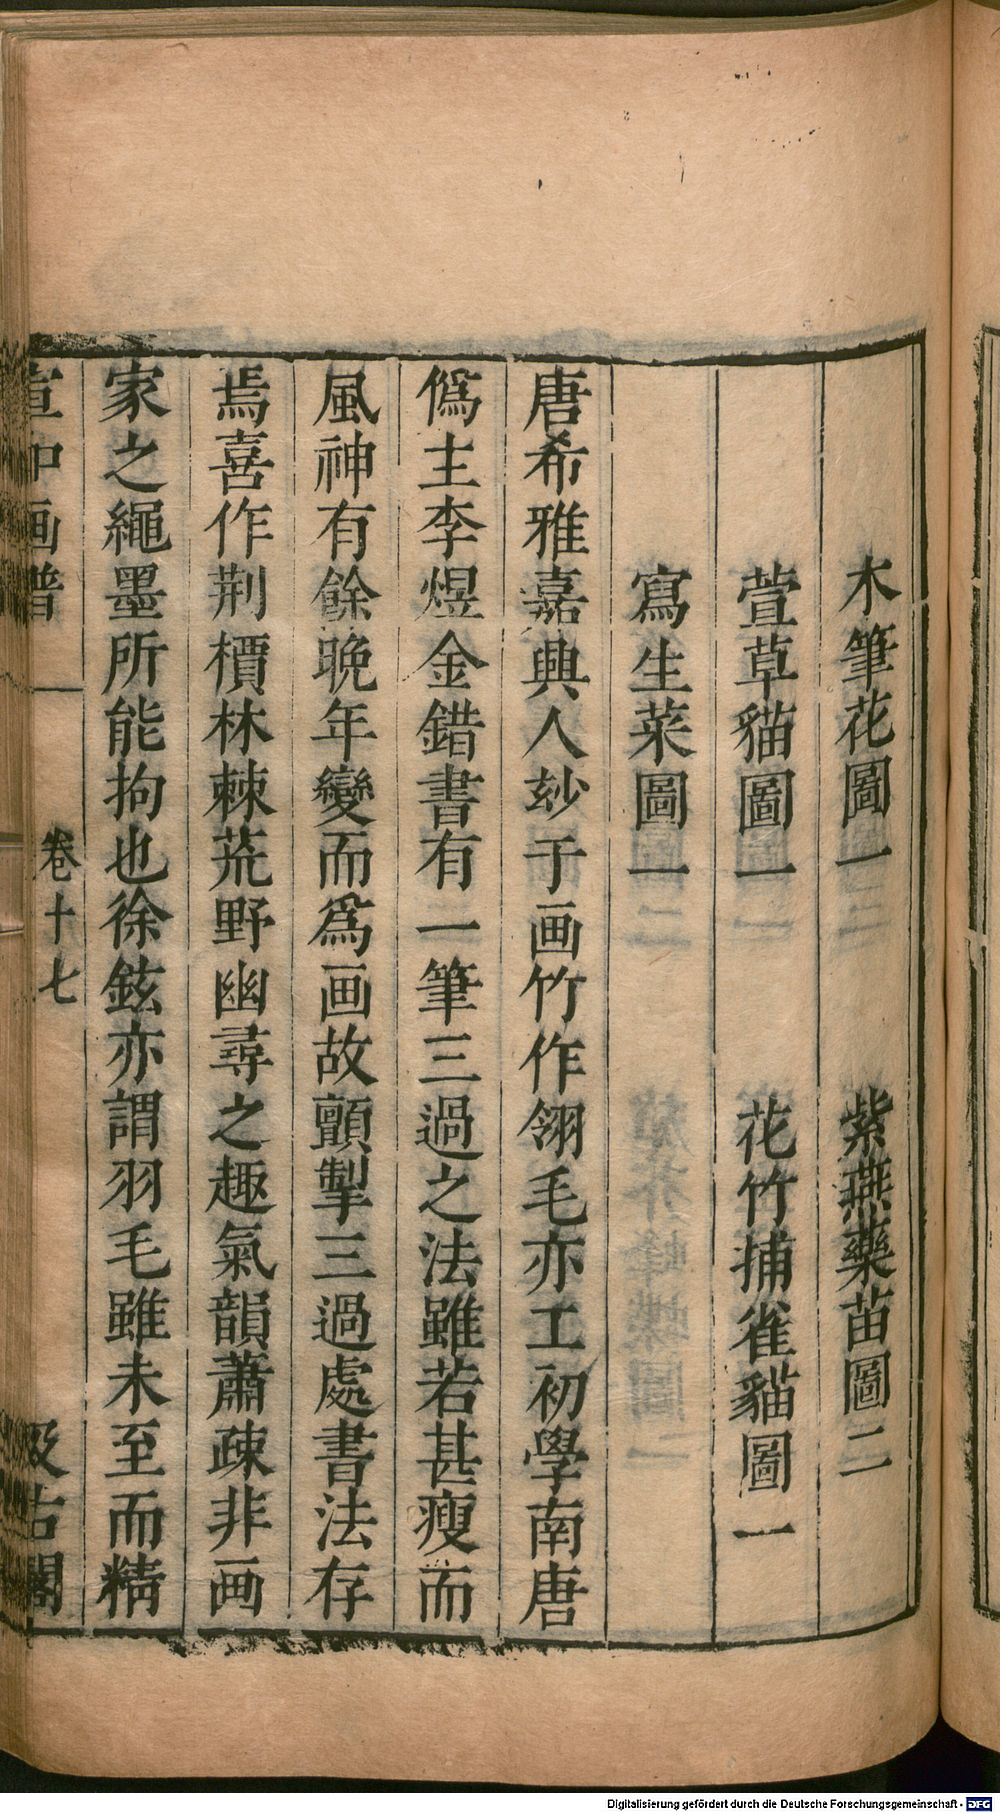 木筆花圖一 紫燕藥苗圖二
萱草貓圖一 花竹捕雀貓圖一
寫生菜圖一
唐希雅嘉興人玅于画竹作翎毛亦工初學南唐
僞主李煜金錯書有一筆三過之法雖若甚瘦而
風神有餘晚年變而爲画故顫掣三過處書法存
焉喜作荆檟林棘荒野幽尋之趣氣韻蕭疎非画
家之繩墨所能拘也徐鉉亦謂羽毛雖未至而精
宣和画譜 卷十七 汲古閣
Digitalisierung gefördert durch die Deutsche Forschungsgemeinschaft - DFG